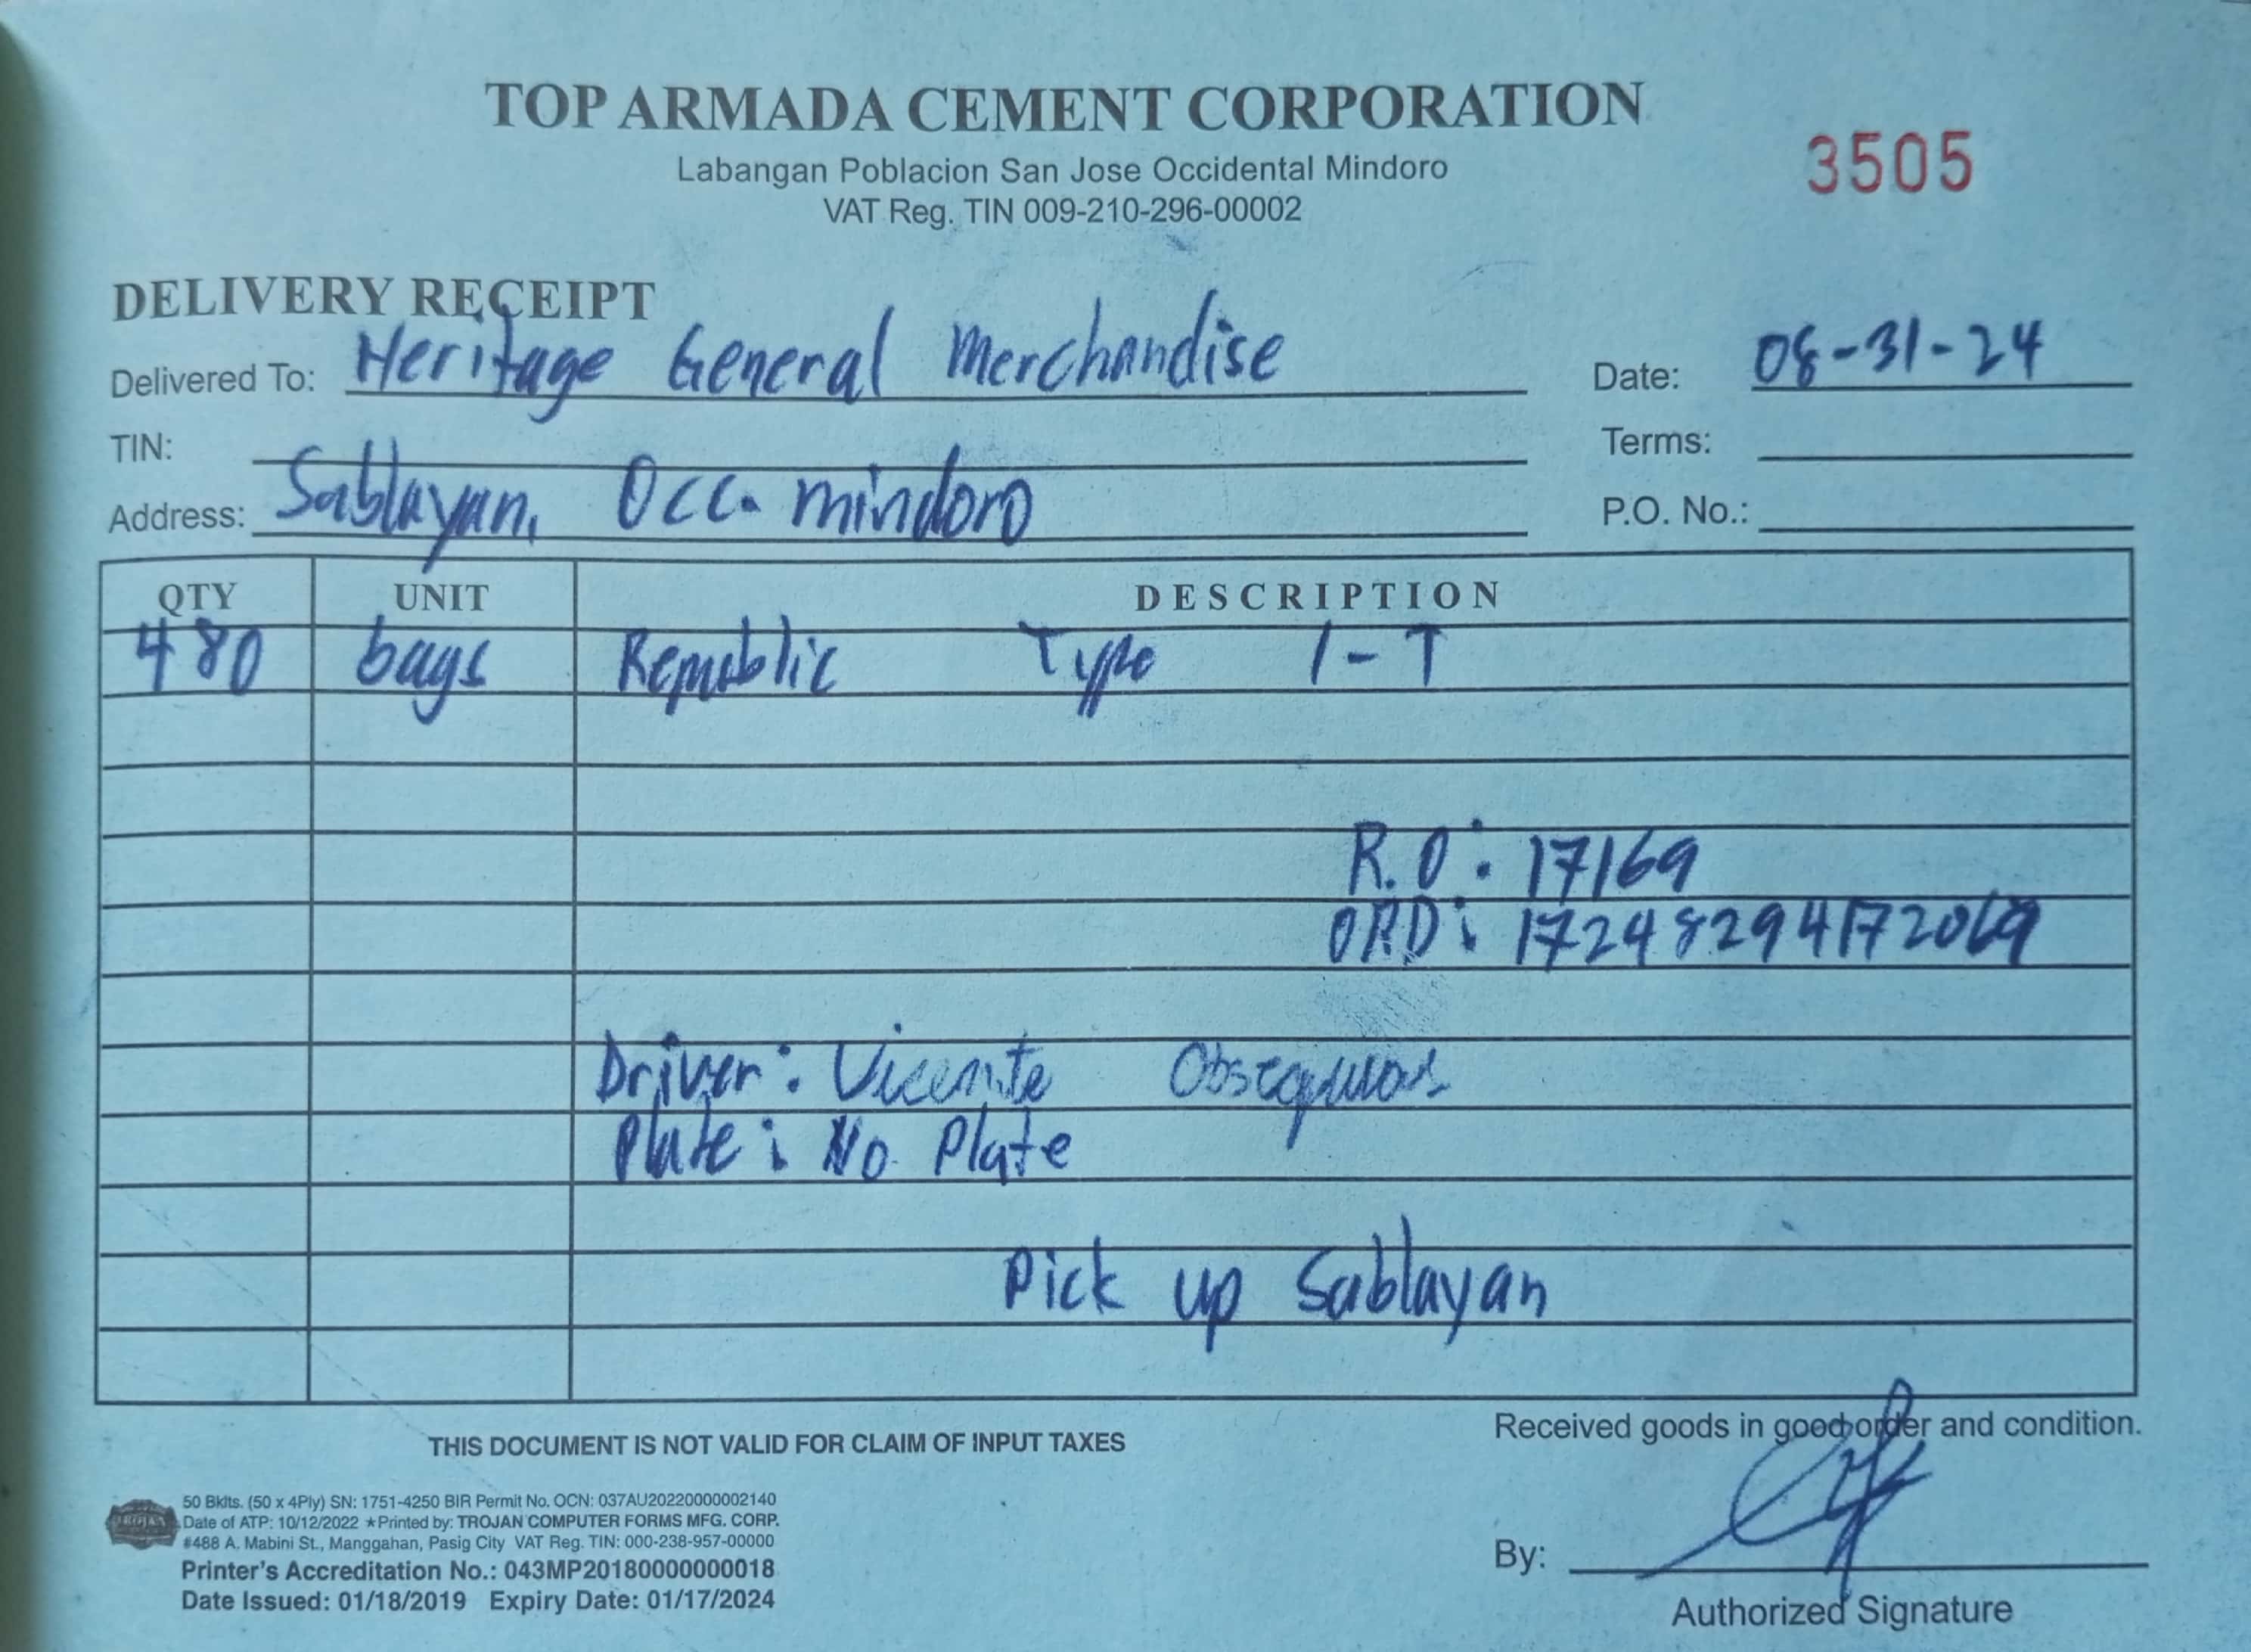 TOP ARMADA CEMENT CORPORATION
Labangan Poblacion San Jose Occidental Mindoro
VAT Reg. TIN 009-210-296-00002
3505
DELIVERY RECEIPT
Delivered To: Heritage General Merchandise
Date: 08-31-24
TIN:
Terms:
Address: Sablayan, Occ. Mindoro
P.O. No.:
QTY UNIT DESCRIPTION
480 bags Republic Type 1-T
R.O: 17169
ORD: 17248294172069
Driver: Vicente
Plate: No Plate
Pick up Sablayan
THIS DOCUMENT IS NOT VALID FOR CLAIM OF INPUT TAXES
Received goods in good order and condition.
50 Bklts. (50 x 4Ply) SN: 1751-4250 BIR Permit No. OCN: 037AU20220000002140
Date of ATP: 10/12/2022 ★Printed by: TROJAN COMPUTER FORMS MFG. CORP.
#488 A. Mabini St., Manggahan, Pasig City VAT Reg. TIN: 000-238-957-00000
Printer's Accreditation No.: 043MP20180000000018
Date Issued: 01/18/2019 Expiry Date: 01/17/2024
By:
Authorized Signature